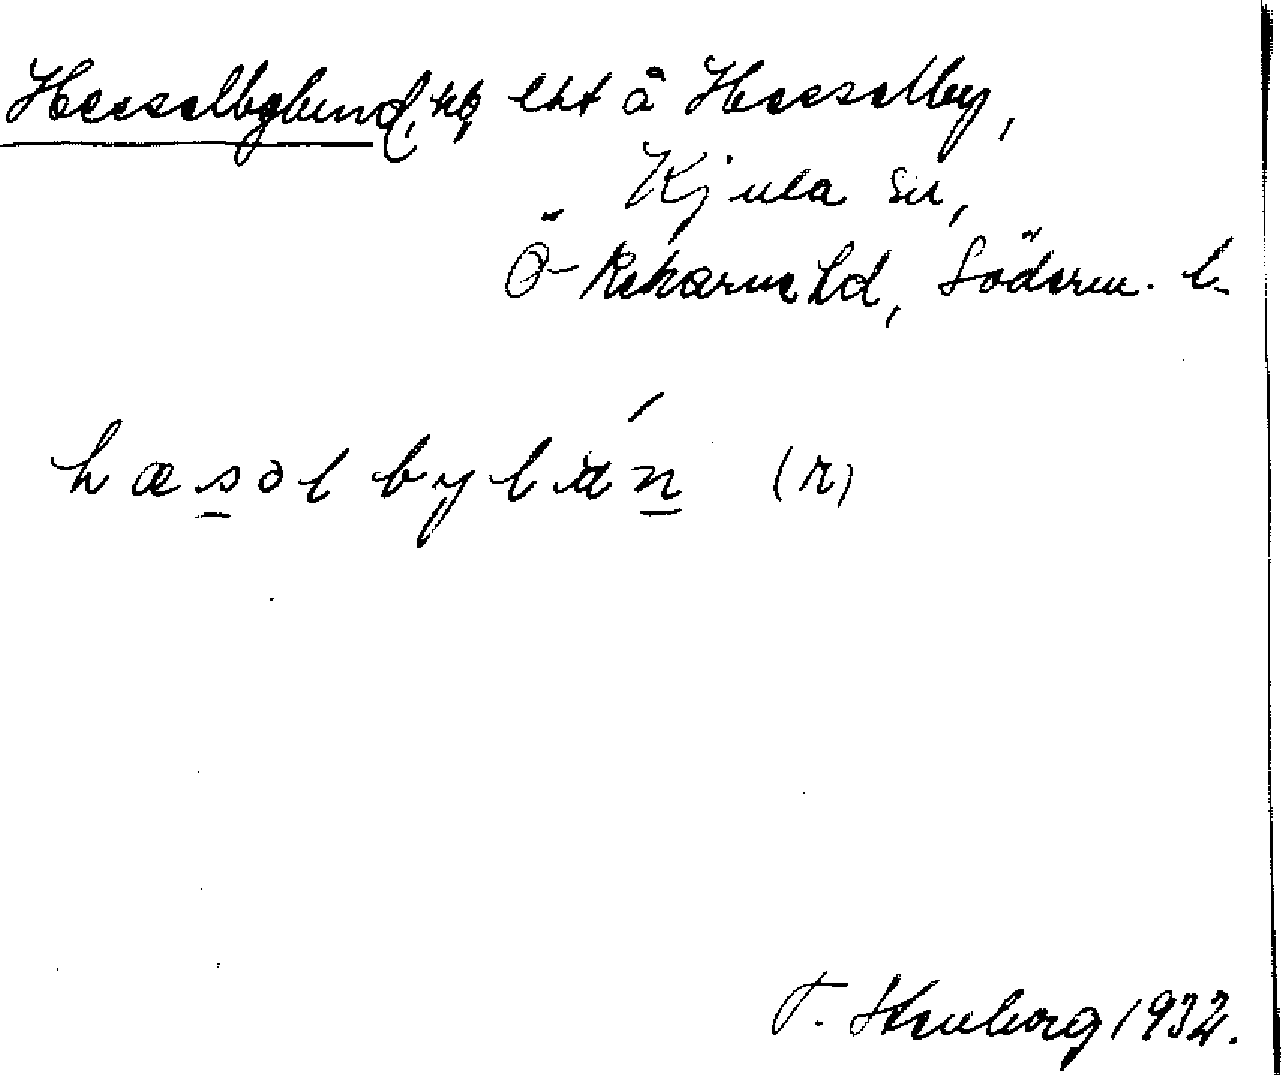 Hesselbylund, hg, lht å Hesselby,
Kjula sn,
Ö-Rekarne hd, Söderm. l.
hæsəlbylún (r)
T. Stenborg 1932.